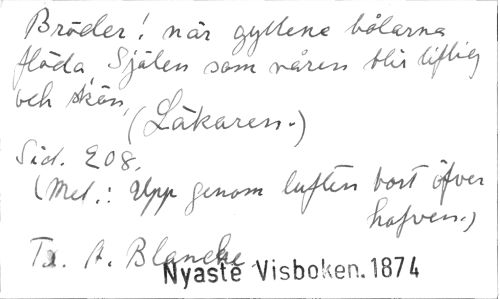 Bröder! när gyllene bålarna
flöda, Själen som våren blir liflig
och skön,
(Läkaren.)
Sid. 208.
(Mel.: Upp genom luften bort öfver
hafven.)
Tx. A. Blanche
Nyaste Visboken. 1874